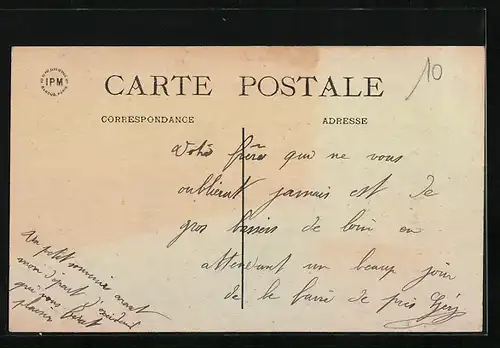 IPM
CARTE POSTALE
10
CORRESPONDANCE
ADRESSE
Votre frère qui ne vous
oublierat jamais est de
gros baisers de loin en
attendant un beaux jour
de le faire de près Géry
Un petit souvenir avant
mon départ
qui vous ferat
plaisir